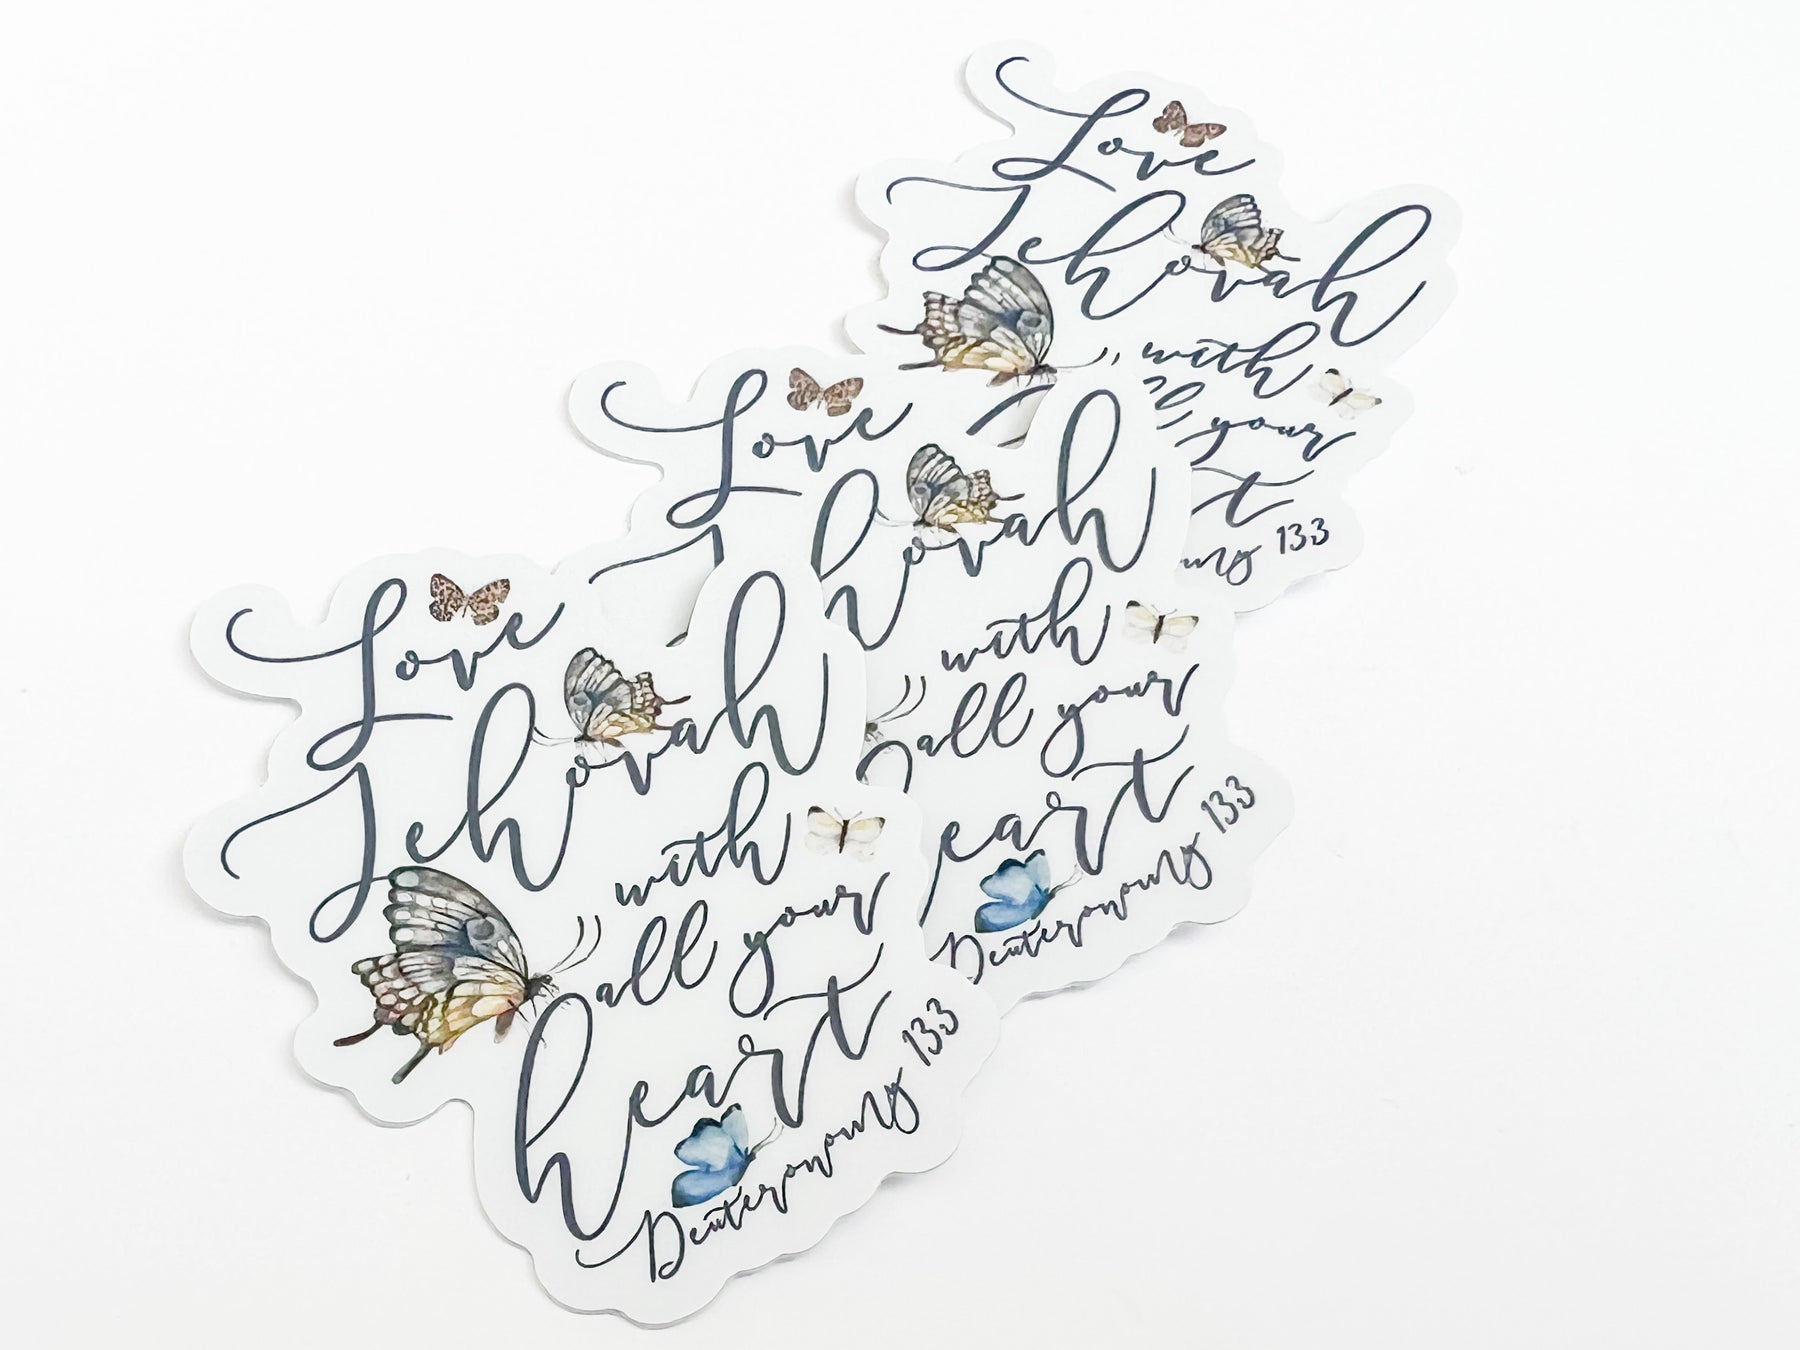 Love
Jehovah
with
all your
heart
Deuteronomy 13:3
Love
Jehovah
with
all your
heart
Deuteronomy 13:3
Love
Jehovah
with
your
13:3